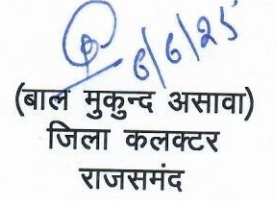 6/6/25
(बाल मुकुन्द असावा)
जिला कलक्टर
राजसमंद